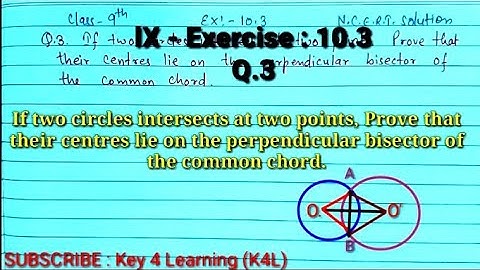 Class - 9th Ex! - 10.3 N.C.E.R.T. Solution
IX - Exercise : 10.3
Q.3. If two circles Prove that
Q.3
their centres lie on the perpendicular bisector of
the common chord.
If two circles intersects at two points, Prove that
their centres lie on the perpendicular bisector of
the common chord.
A
O O'
B
SUBSCRIBE : Key 4 Learning (K4L)